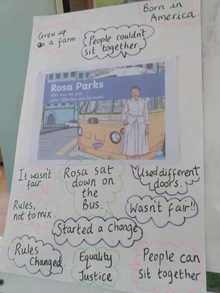 Born in
America
Grew up
on a farm
People couldn't
sit together
Rosa Parks
It wasn't
fair
Rosa sat
down on
the
Bus.
Used different
doors.
Rules,
not to mix
Wasn't fair!!
Started a Change
Rules
Changed
Equality
Justice
People can
sit together